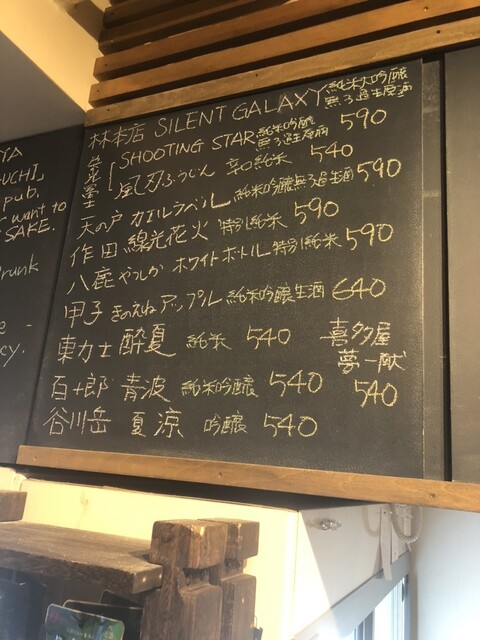 YA
UCHI」
pub.
want to
SAKE.
drunk
cy.
林本店 SILENT GALAXY 純米大吟醸
無ろ過生原酒 590
SHOOTING STAR 純米吟醸
無ろ過生原酒
風刃ふうじん 辛口純米 540
天の戸 カエルラベル 純米吟醸無ろ過生酒 590
作田 線光花火 特別純米 590
八鹿 やつしか ホワイトボトル 特別純米 590
甲子 きのえね アップル 純米吟醸生酒 640
東力士 酔夏 純米 540
百十郎 青波 純米吟醸 540
谷川岳 夏涼 吟醸 540
喜多屋
夢一献
540